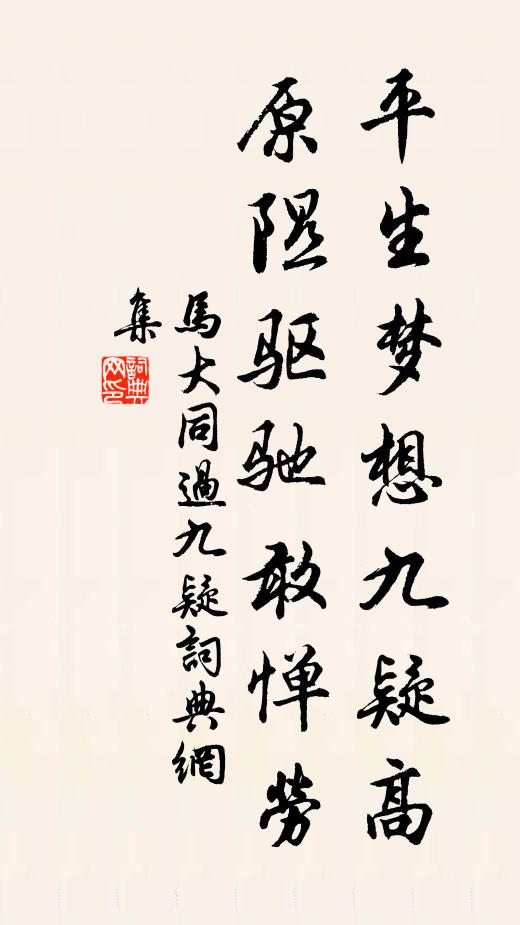 平生梦想九疑高
原隰驱驰敢惮劳
馬大同過九疑詞典網
集
詞典网印